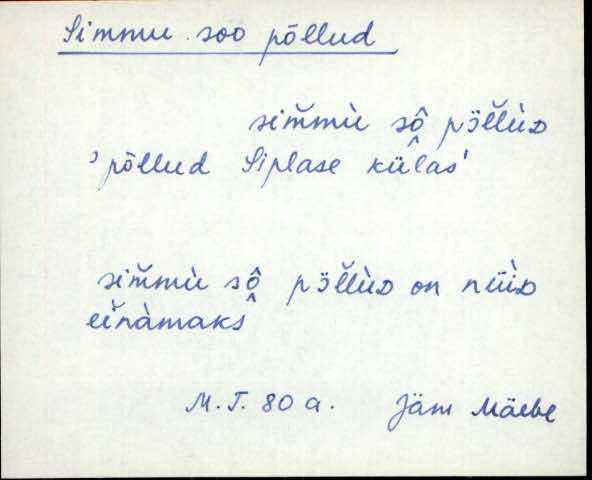 Simmu soo põllud
sim̆mù sô̭ pɜ̈l̆lùᴅ
'põllud Siplase külas'
sim̆mù sô̭ pɜ̈l̆lùᴅ on nüìᴅ
eìnàmaks
M. T. 80 a. Jäm Mäebe